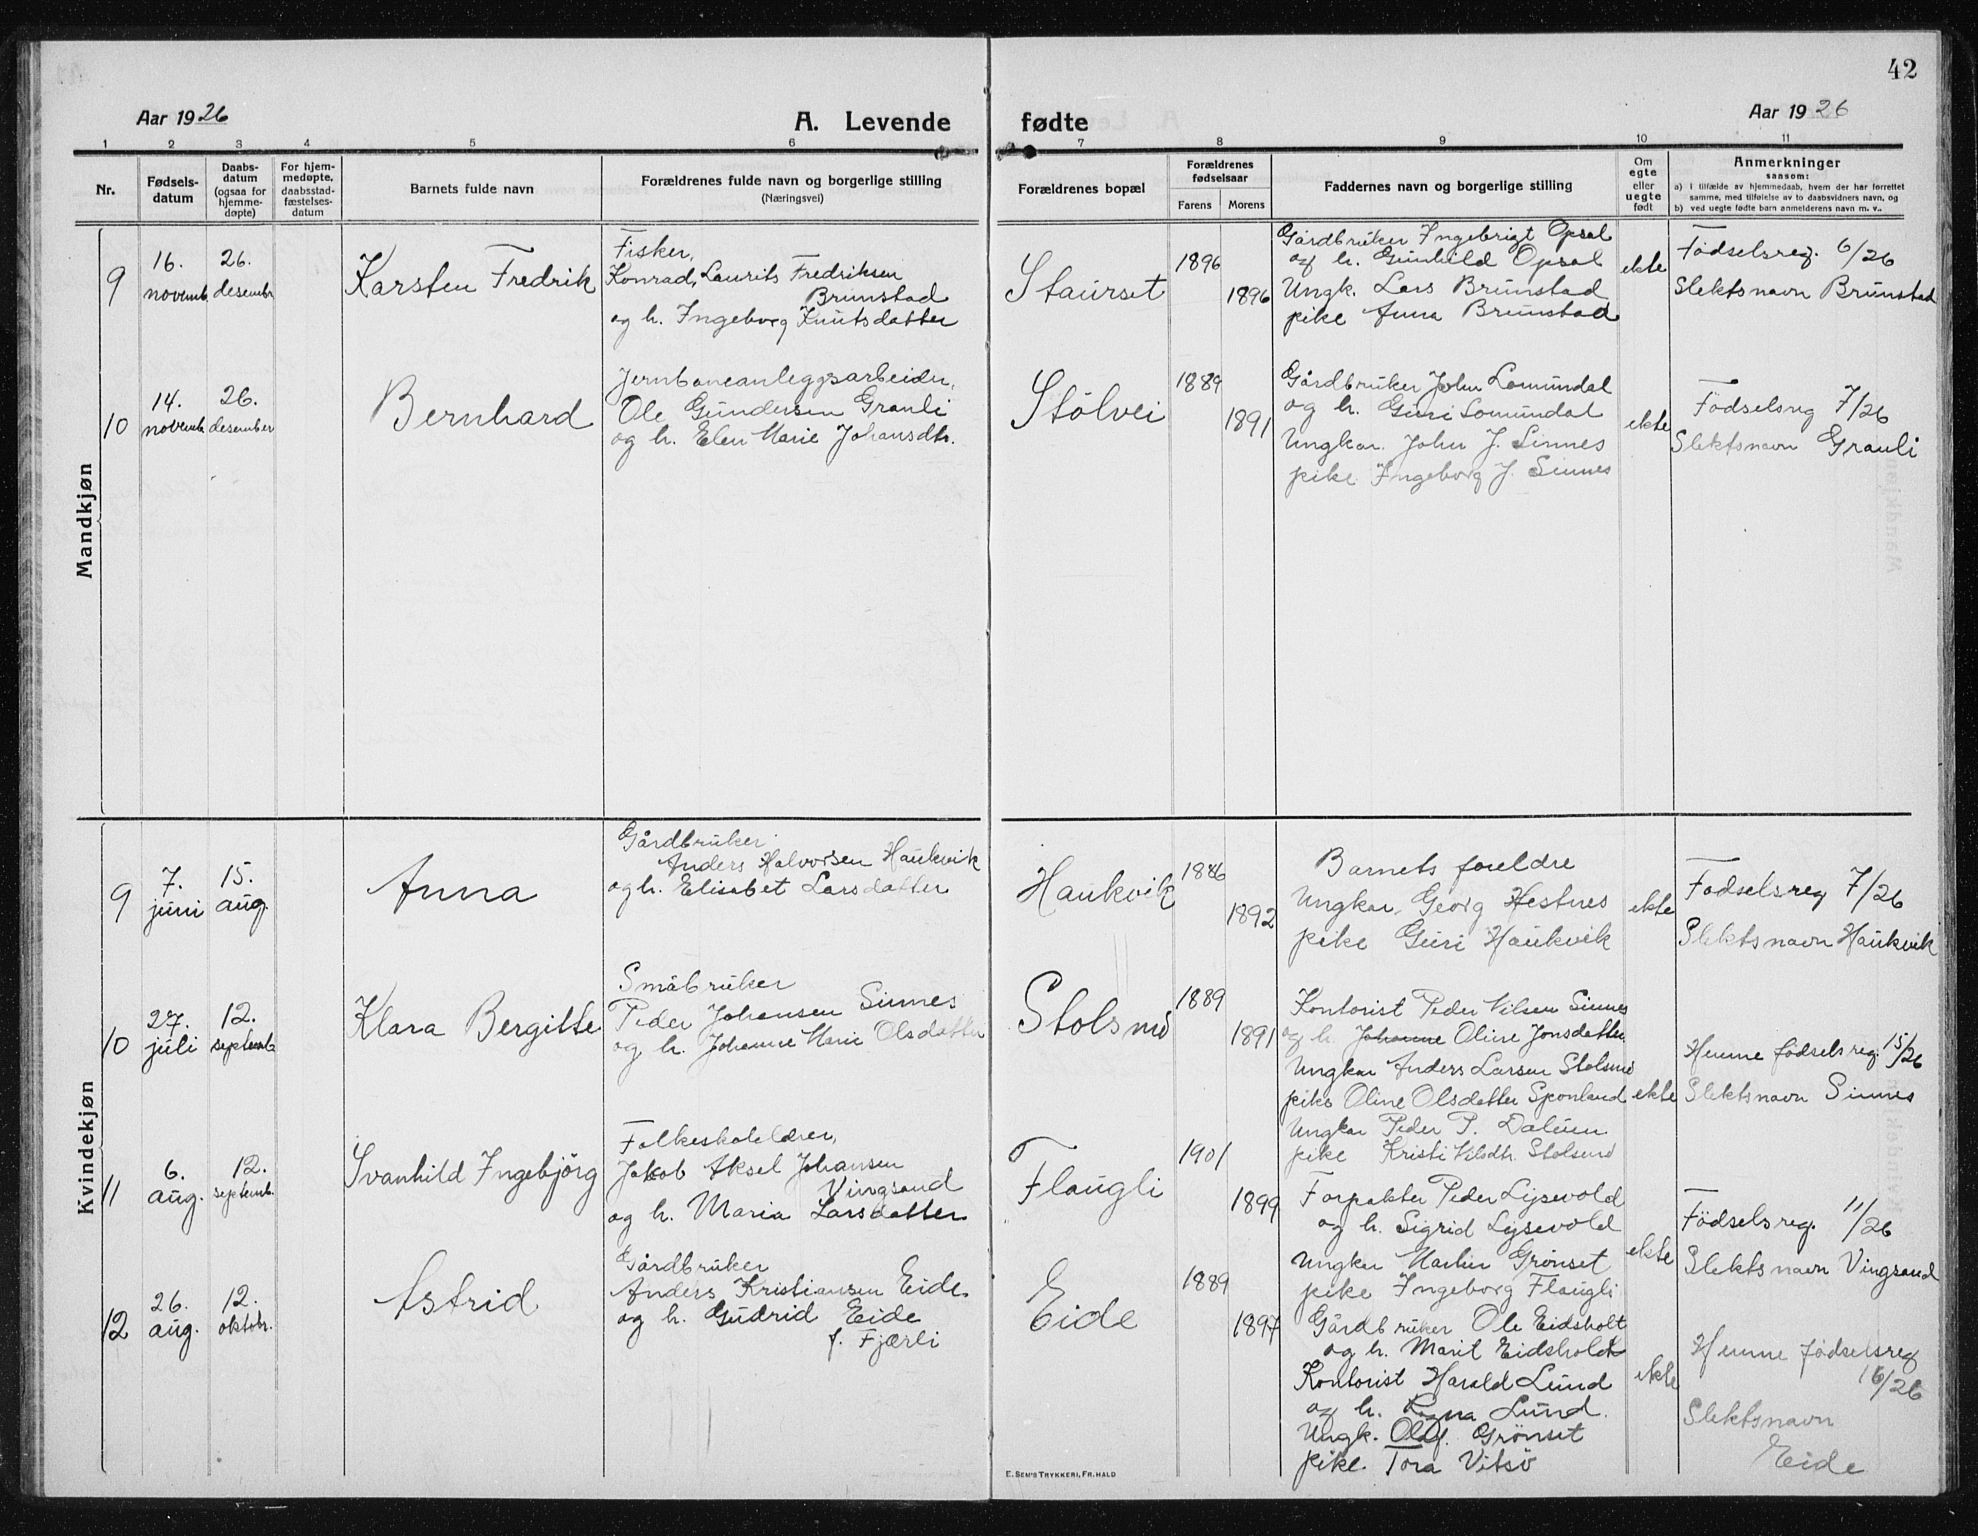 42
Aar 1926
A. Levende fødte
Aar 1926
1 2 3 4 5 6 7 8 9 10 11
Nr.
Fødsels-
datum
Daabs-
datum
(ogsaa for
hjemme-
døpte)
For hjem-
medøpte,
daabsstad-
fæstelses-
datum
Barnets fulde navn
Forældrenes fulde navn og borgerlige stilling
(Næringsvei)
Forældrenes bopæl
Forældrenes
fødselsaar
Farens
Morens
Faddernes navn og borgerlige stilling
Om
egte
eller
uegte
født
Anmerkninger
sansom:
a) i tilfælde av hjemmedaab, hvem der har forrettet
samme, med tilføielse av to daabsvidners navn, og
b) ved uegte fødte barn anmelderens navn m. v..
Mandkjøn
9
16.
novemb.
26.
desembr
Karsten Fredrik
Fisker,
Konrad, Laurits Fredriksen
Brunstad
og h. Ingeborg Knutsdatter
Staurset
1896
1896
Gårdbruker Ingebrigt Opsal
og h. Gunhild Opsal
Ungk. Lars Brunstad
pike Anna Brunstad
ekte
Fødselsreg. 6/26
Slektsnavn Brunstad
10
14.
novemb.
26.
desember
Bernhard
Jernbaneanleggsarbeider,
Ole Gundersen Grauli
og h. Elen Marie Johansdtr.
Stølvei
1889
1891
Gårdbruker John Lomundal
og h. Guri Lomundal
Ungkar. John J. Sinnes
pike Ingeborg J. Sinnes
ekte
Fødselsreg 7/26
Slektsnavn Grauli
Kvindekjøn
9
7.
juni
15.
aug.
Anna
Gårdbruker
Anders Halvorsen Haukvik
og h. Elisabet Larsdatter
Haukvik
1886
1892
Barnets foreldre
Ungkar, Georg Hestnes
pike Guri Haukvik
ekte
Fødselsreg 7/26
Slektsnavn Haukvik
10
27.
juli
12.
septemb.
Klara Bergitte
Småbruker
Peder Johansen Sinnes
og h. Johanne Marie Olsdatter
Stolsmo
1889
1891
Kontorist Peder Nilsen Sinnes
og h. Johanne Oline Jonsdatter
Ungkar Anders Larsen Stolsmo
pike Oline Olsdatter Sponland
Ungkar Peder P. Dalum
pike Kristi Stolsmo
ekte
Hemne fødselsreg. 15/26
Slektsnavn Sinnes
11
6.
aug.
12.
septemb.
Svanhild Ingebjörg
Folkeskolelærer,
Jakob Aksel Johansen
Vingsand
og h. Maria Larsdatter
Flaugli
1901
1899
Forpakter Peder Lysevold
og h. Sigrid Lysevold
Ungkar Martin Grønset
pike Ingeborg Flaugli
ekte
Fødselsreg. 11/26
Slektsnavn Vingsand
12
26.
aug.
12.
oktobr.
Astrid
Gårdbruker
Anders Kristiansen Eide
og h. Gudrid Eide
f. Fjærli
Eide
1889
1897
Gårdbruker Ole Eidsholt
og h. Marit Eidsholt
Kontorist Harald Lund
og h. Lund.
Ungk. Olaf. Grönset
pike. Tora Vitsö
ekte
Hemne fødselsreg
16/26
Slektsnavn
Eide
E. Sem's Trykkeri, Fr.hald